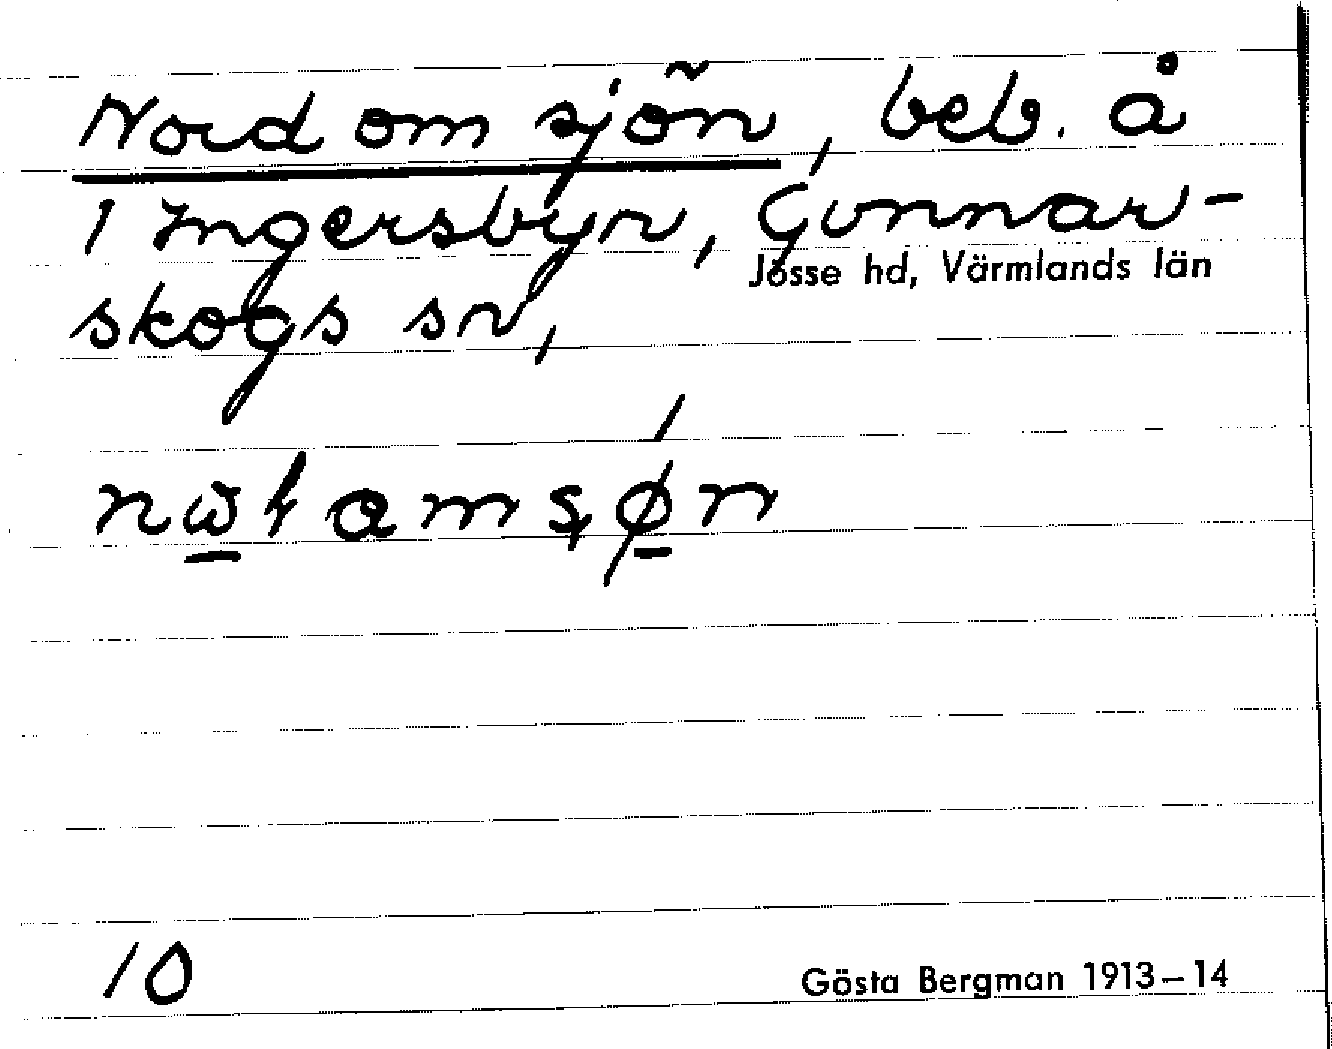 Nord om sjön, beb. å
1 Ingersbyn, Gunnar-
Jösse hd, Värmlands län
skogs sn,
10
Gösta Bergman 1913–14